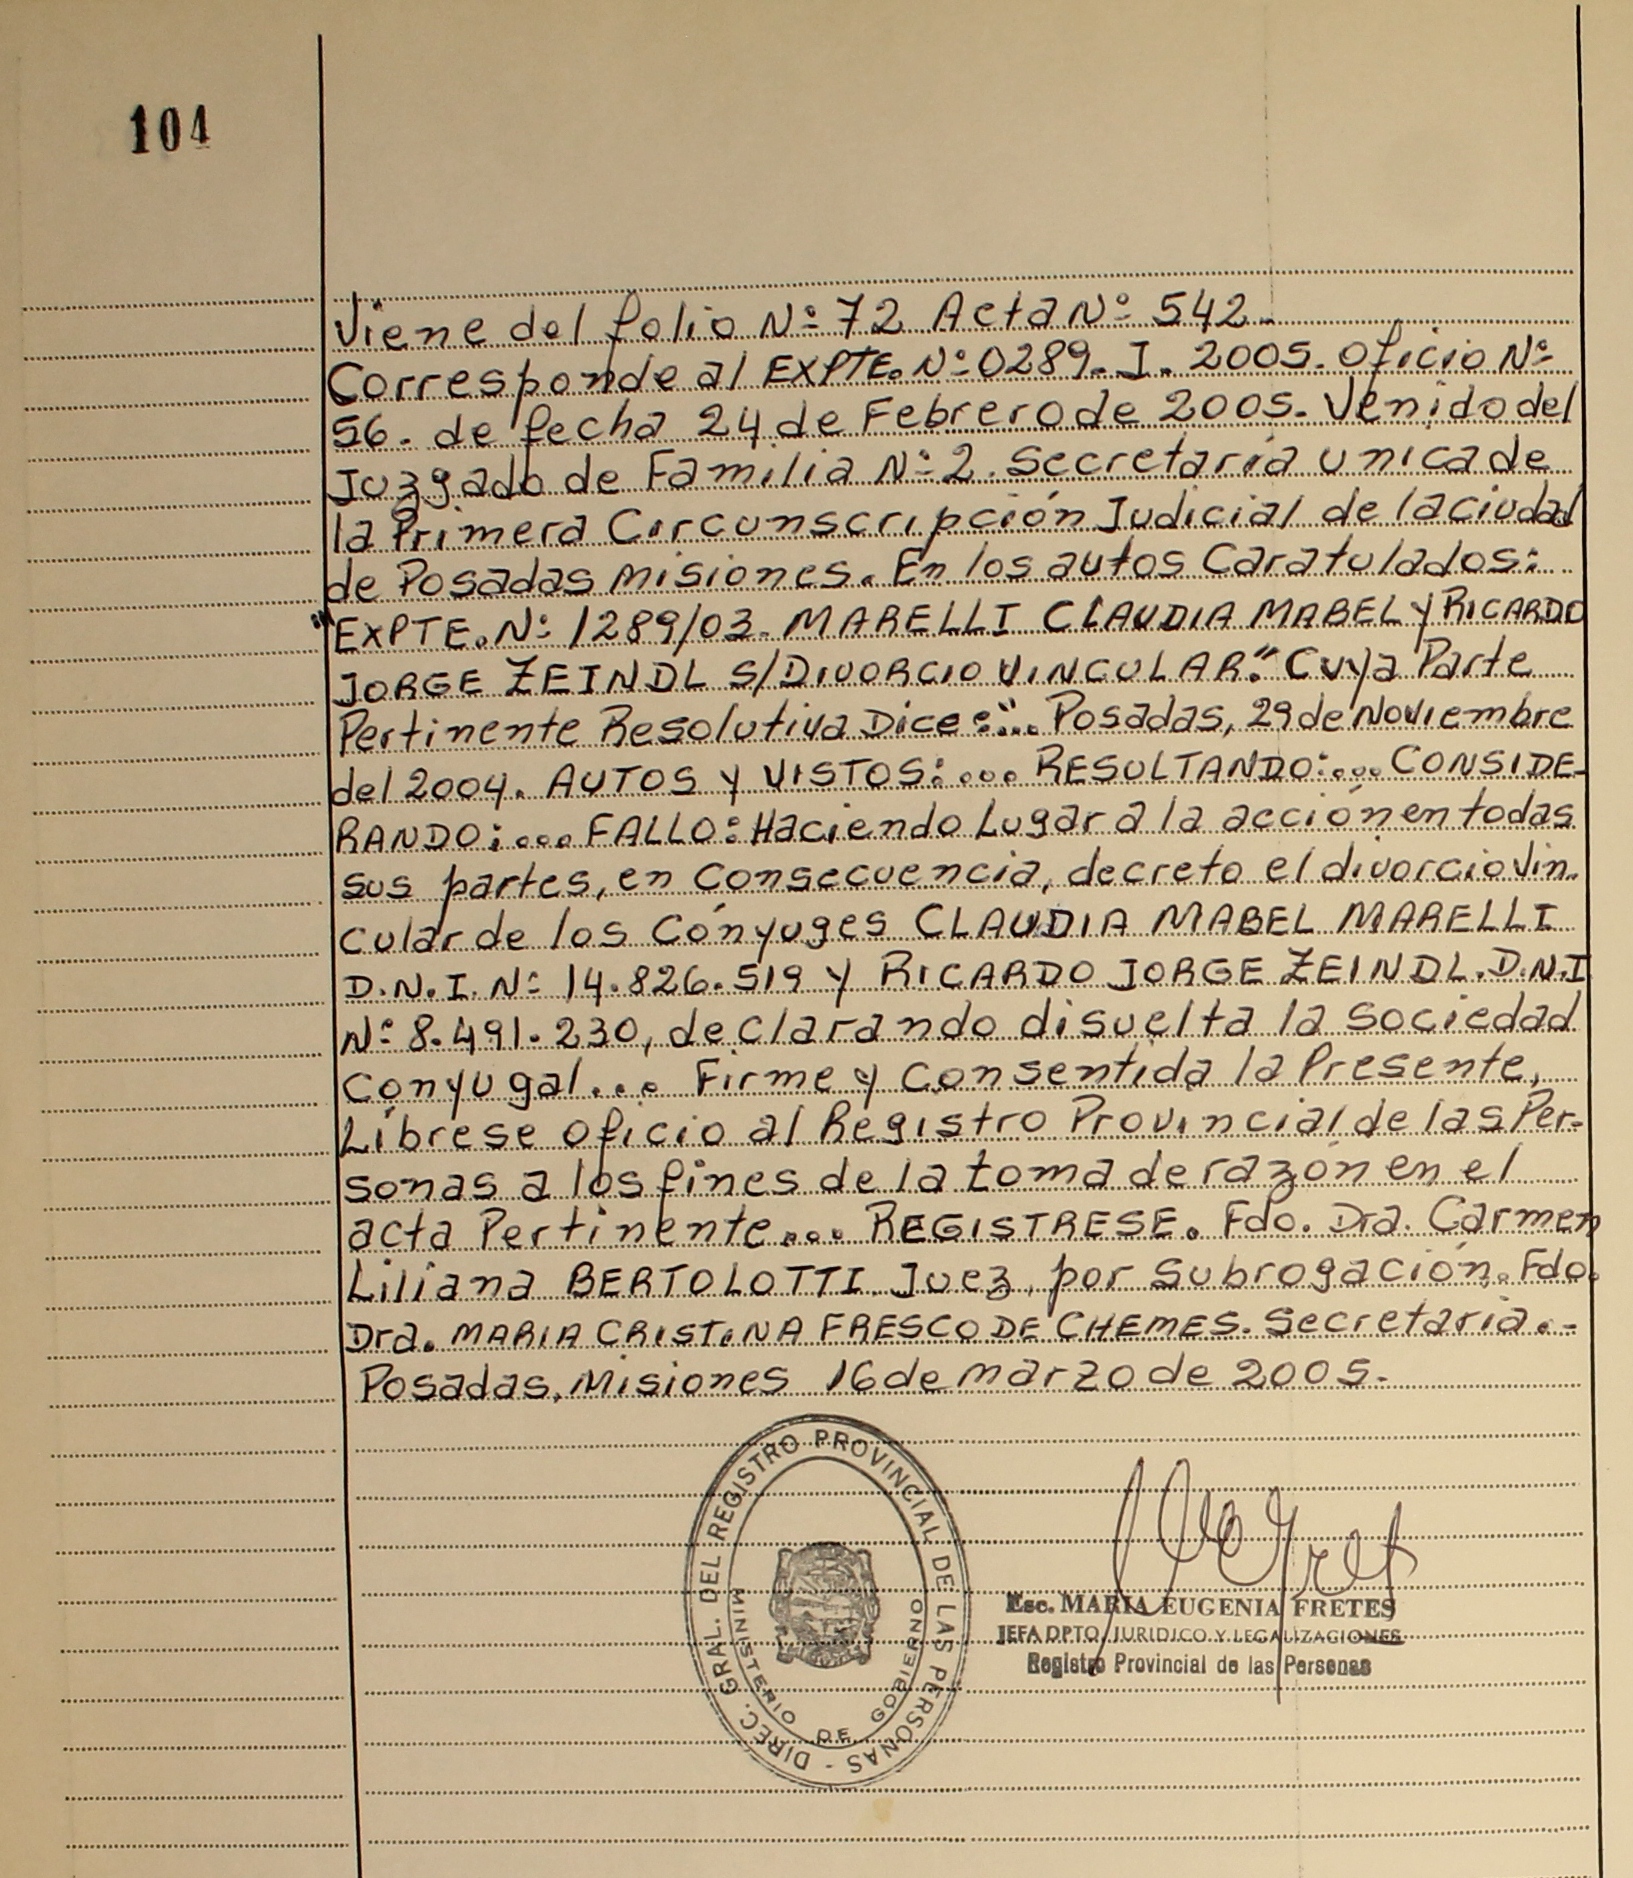 104
Viene del folio Nº 72 Acta Nº 542.
Corresponde al EXPTE. Nº 0289. I. 2005. Oficio Nº
56. de fecha 24 de Febrero de 2005. Venido del
Juzgado de Familia Nº 2. Secretaría unica de
la Primera Circunscripción Judicial de la ciudad
de Posadas Misiones. En los autos Caratulados:
"EXPTE. Nº 1289/03. MARELLI CLAUDIA MABEL y RICARDO
JORGE ZEINDL S/DIVORCIO VINCULAR." Cuya Parte
Pertinente Resolutiva Dice: "... Posadas, 29 de Noviembre
del 2004. AUTOS y VISTOS:... RESULTANDO:... CONSIDE-
RANDO:... FALLO: Haciendo Lugar a la acción en todas
sus partes, en Consecuencia, decreto el divorcio Vin-
cular de los Cónyuges CLAUDIA MABEL MARELLI
D.N.I. Nº 14.826.519 y RICARDO JORGE ZEINDL. D.N.I
Nº 8.491.230, declarando disuelta la Sociedad
Conyugal... Firme y Consentida la Presente,
Líbrese oficio al Registro Provincial de las Per-
sonas a los fines de la toma de razón en el
acta Pertinente... REGISTRESE. Fdo. Dra. Carmen
Liliana BERTOLOTTI. Juez, por Subrogación. Fdo.
Dra. MARIA CRISTINA FRESCO DE CHEMES. Secretaria.-
Posadas, Misiones 16 de marzo de 2005.-
DIREC. GRAL. DEL REGISTRO PROVINCIAL DE LAS PERSONAS -
MINISTERIO DE GOBIERNO
Esc. MARIA EUGENIA FRETES
JEFA DPTO. JURIDICO Y LEGALIZACIONES
Registro Provincial de las Personas